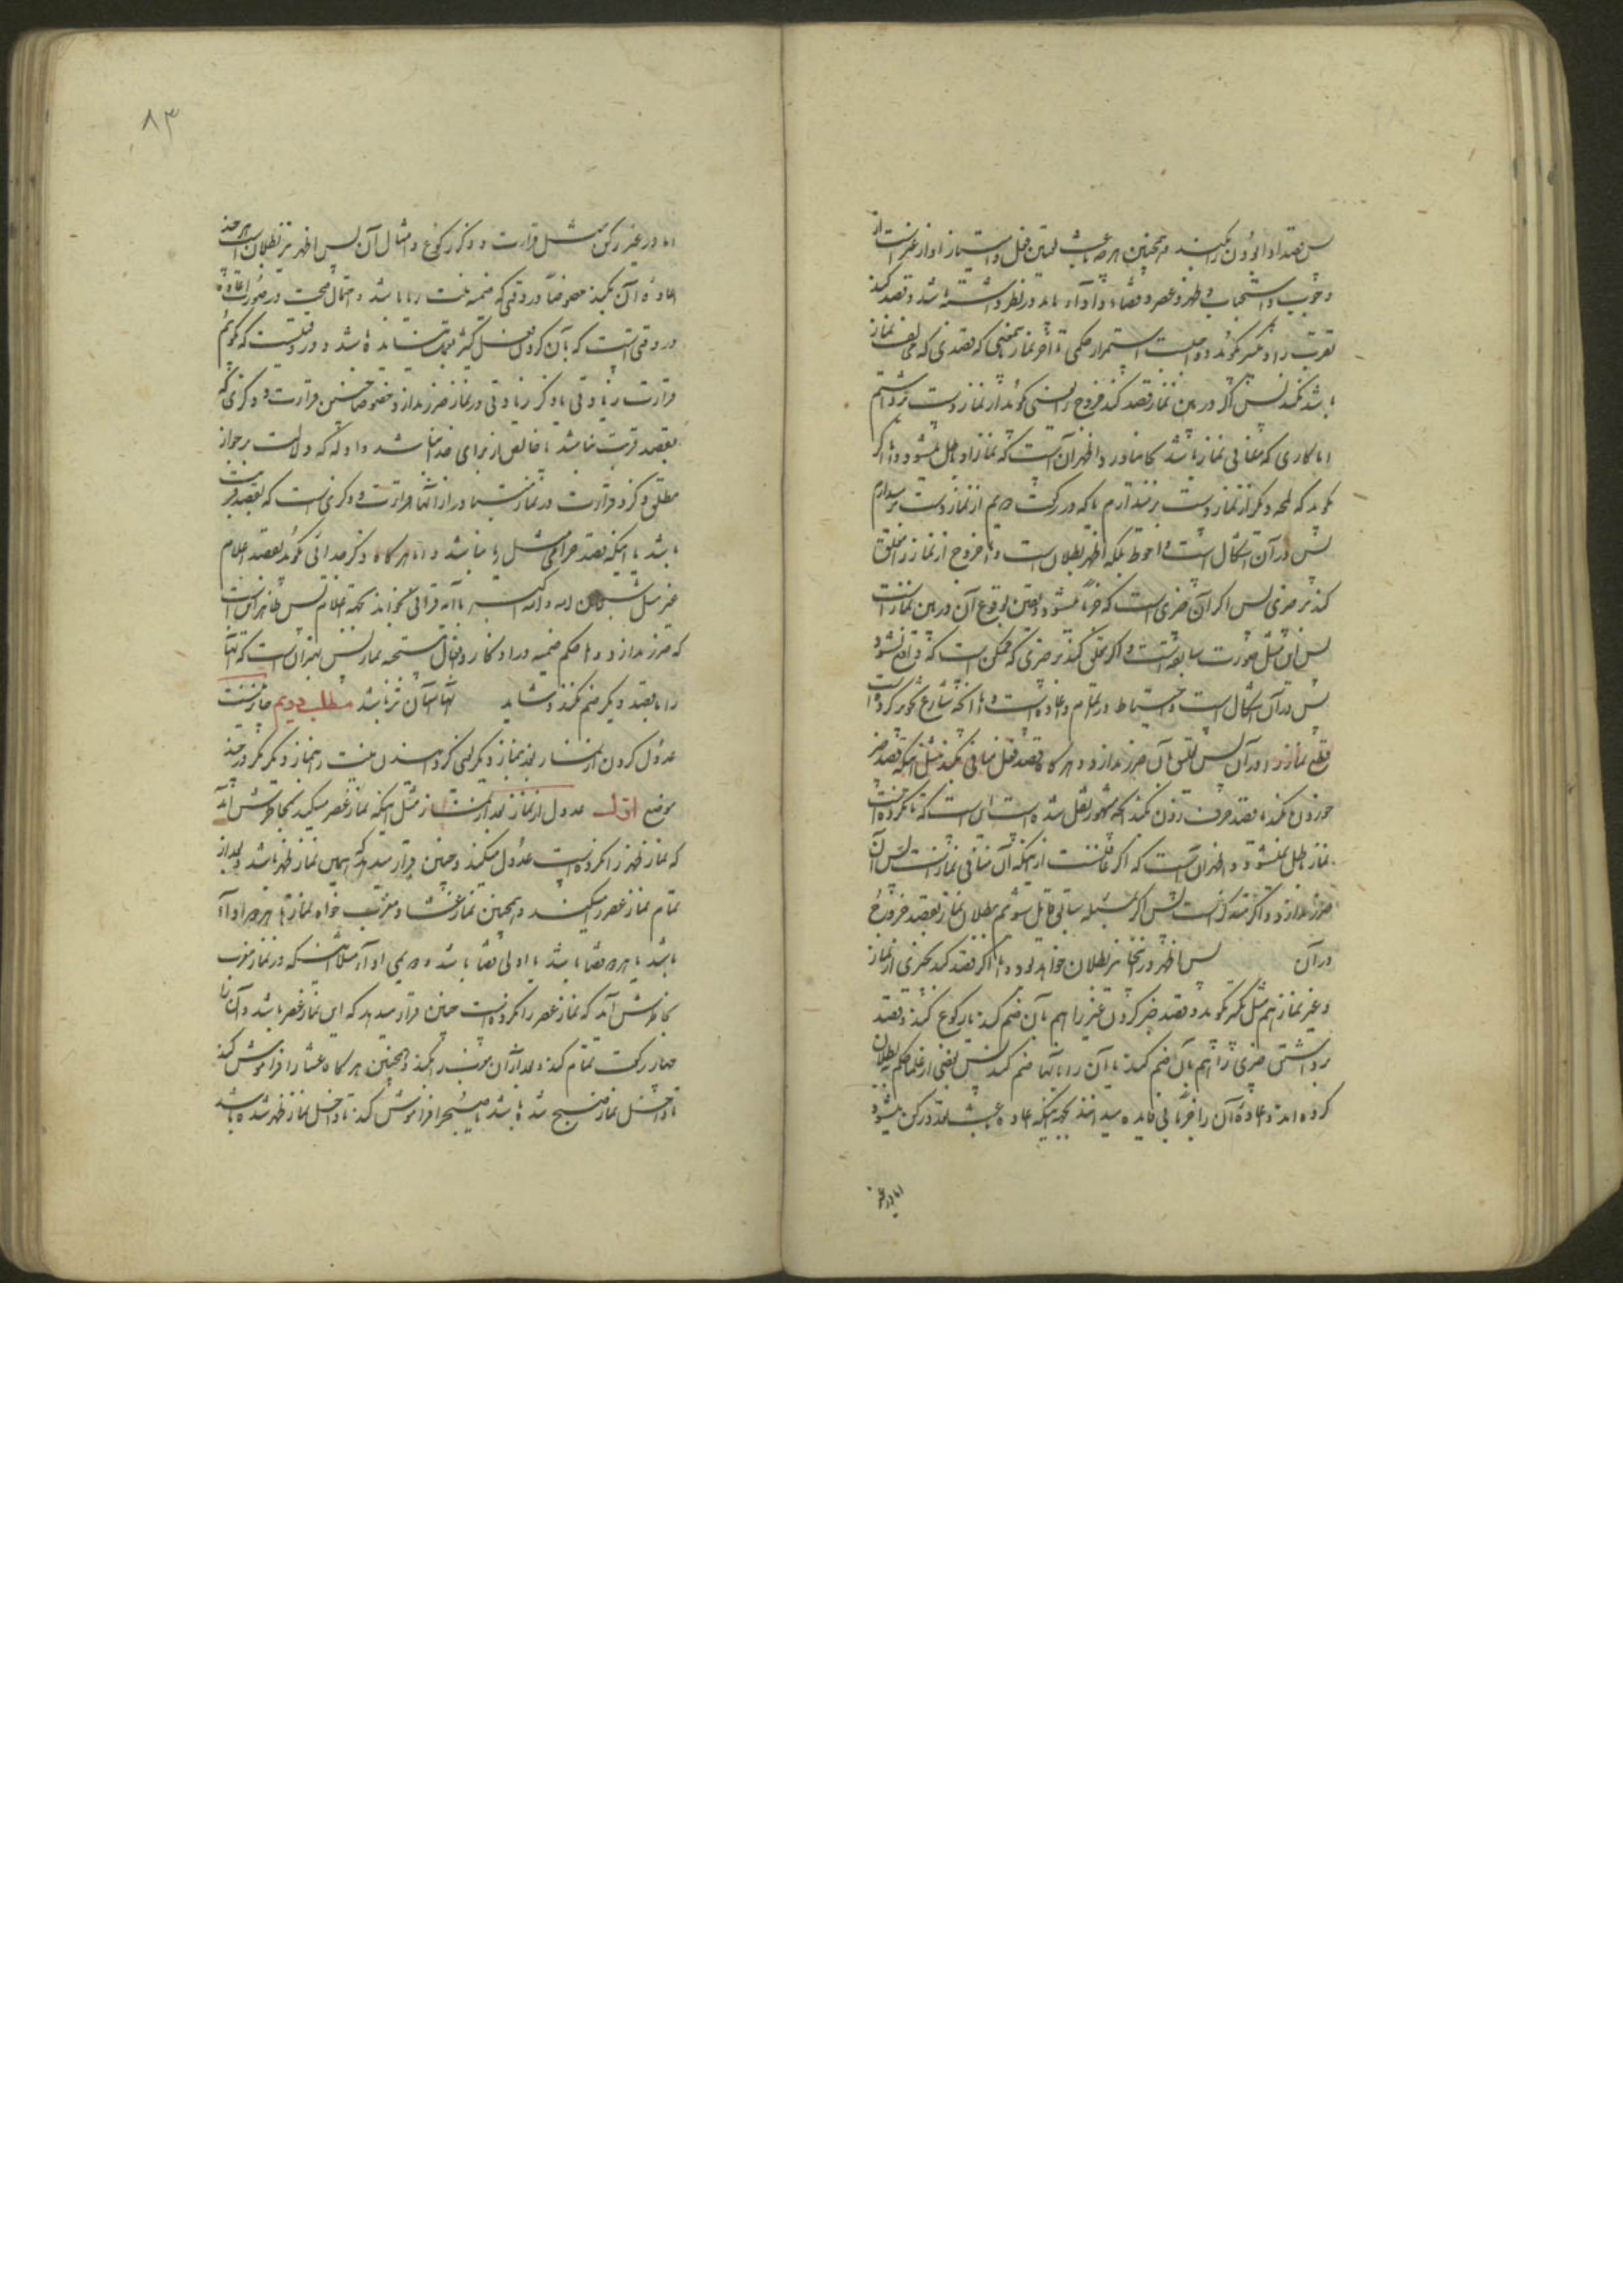 پس قصد ادا بودن را بکند و همچنین هر چه باعث تعیین فعل و امتیاز او از غیر است از
وجوب و استحباب و ظهر و عصر و قضاء و اداء باید در نظر داشته باشد و قصد کند
قربت را و تکبیر بگوید و واجب است استمرار حکمی تا آخر نماز بمعنی که قصدی که مخالف نماز
باشد نکند پس اگر در بین نماز قصد کند خروج را یعنی گوید از نماز دست برداشتم
یا کاری که منافی نماز باشد و اظهر آن است که نماز او باطل میشود و اما اگر
گوید که لحظه دیگر از نماز دست بر میدارم یا که در رکعت دویم از نماز دست بر میدارم
پس در آن اشکال است و احوط بلکه اظهر بطلان است و اما خروج از نماز را معلق
کند بر چیزی پس اگر آن چیزی است که جزماً میشود و یقین بوقوع آن در بین نماز است
پس این مثل صورت سابقه است و اگر معلق کند بر چیزی که ممکن است که واقع نشود
پس در آن اشکال است و احتیاط در اتمام و اعاده است و اما آنچه شارع تجویز کرده است
قطع نماز را در آن پس تعلیق آن ضرر ندارد و هر گاه قصد فعل منافی بکند مثل اینکه قصد چیز
خوردن بکند یا قصد حرف زدن بکند آنچه مشهور نقل شده است این است که تا نکرده است
نماز باطل نمیشود و اظهر آن است که اگر غافلست از اینکه آن منافی نماز است پس آن
ضرر ندارد و اگر متذکر است پس اگر در مسئله سابق قایل شویم ببطلان نماز بقصد خروج
در آن پس اظهر در اینجا نیز بطلان خواهد بود و اما اگر قصد کند بچیزی از نماز
و غیر نماز هم مثل تکبیر گوید و قصد خبر کردن غیر را هم بآن ضم کند یا رکوع کند و قصد
برداشتن چیزی را هم بآن ضم کند یا آن را باینها ضم کند پس بعضی از علما حکم ببطلان
کرده اند و اعاده آن را جزماً بی فایده میدانند بجهة اینکه اعاده باعث تعدد رکن میشود
اما در غیر
۸۳
اما در غیر رکن مثل قرائت و ذکر رکوع و امثال آن پس اظهر نیز بطلان است هر چند
اعاده آن بکند خصوصاً در وقتی که ضمیمه نیت ریا باشد و احتمال صحت در صورت اعاده
در وقتی است که بآن کردن فعل کثیر بعمل نیامده باشد و در وقتیست که گوئیم
قرائت زیادتی یا ذکر زیادتی در نماز ضرر ندارد خصوصاً چنین قرائت و ذکری که
بقصد قربت نباشد یا خالص از برای خدا نباشد و ادله که دلالت بر جواز
مطلق ذکر و قرائت در نماز میکند مراد از آنها قرائت و ذکری است که بقصد قربت
باشد یا اینکه قصد حرامی مثل ریا نباشد و اما هر گاه ذکر خدائی گوید بقصد اعلام
غیر مثل سبحان الله و الله اکبر یا آیه قرآنی بخواند بجهة اعلام پس ظاهر این است
که ضرر ندارد و اما حکم ضمیمه در اذکار و افعال مستحبه نماز پس بهتر آن است که آنها
را بقصد دیگر ضم نکند و شاید تنها آسان تر باشد مطلب دویم جایز نیست
عدول کردن از نماز بنماز دیگر یعنی گردانیدن نیت را بنماز دیگر مگر در چند
موضع اول عدول از نماز بعد از نماز مثل اینکه نماز عصر میکند بخاطرش آمد
که نماز ظهر را نکرده است عدول میکند و چنین قرار میدهد که همین نماز ظهر باشد و بعد از
تمام نماز عصر را میکند و همچنین نماز عشا و مغرب خواه نمازها هر دو ادا
باشد یا هر دو قضا باشد یا اولی قضا باشد و دویمی ادا مثل اینکه در نماز مغرب
بخاطرش آمد که نماز عصر را نکرده است چنین قرار میدهد که این نماز عصر باشد و آن را
چهار رکعت تمام کند و بعد از آن مغرب را بکند و همچنین هر گاه عشا را فراموش کند
تا داخل نماز صبح شده باشد یا صبح را فراموش کند تا داخل نماز ظهر شده باشد